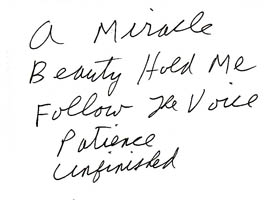 a Miracle
Beauty Hold Me
Follow The Voice
Patience
Unfinished